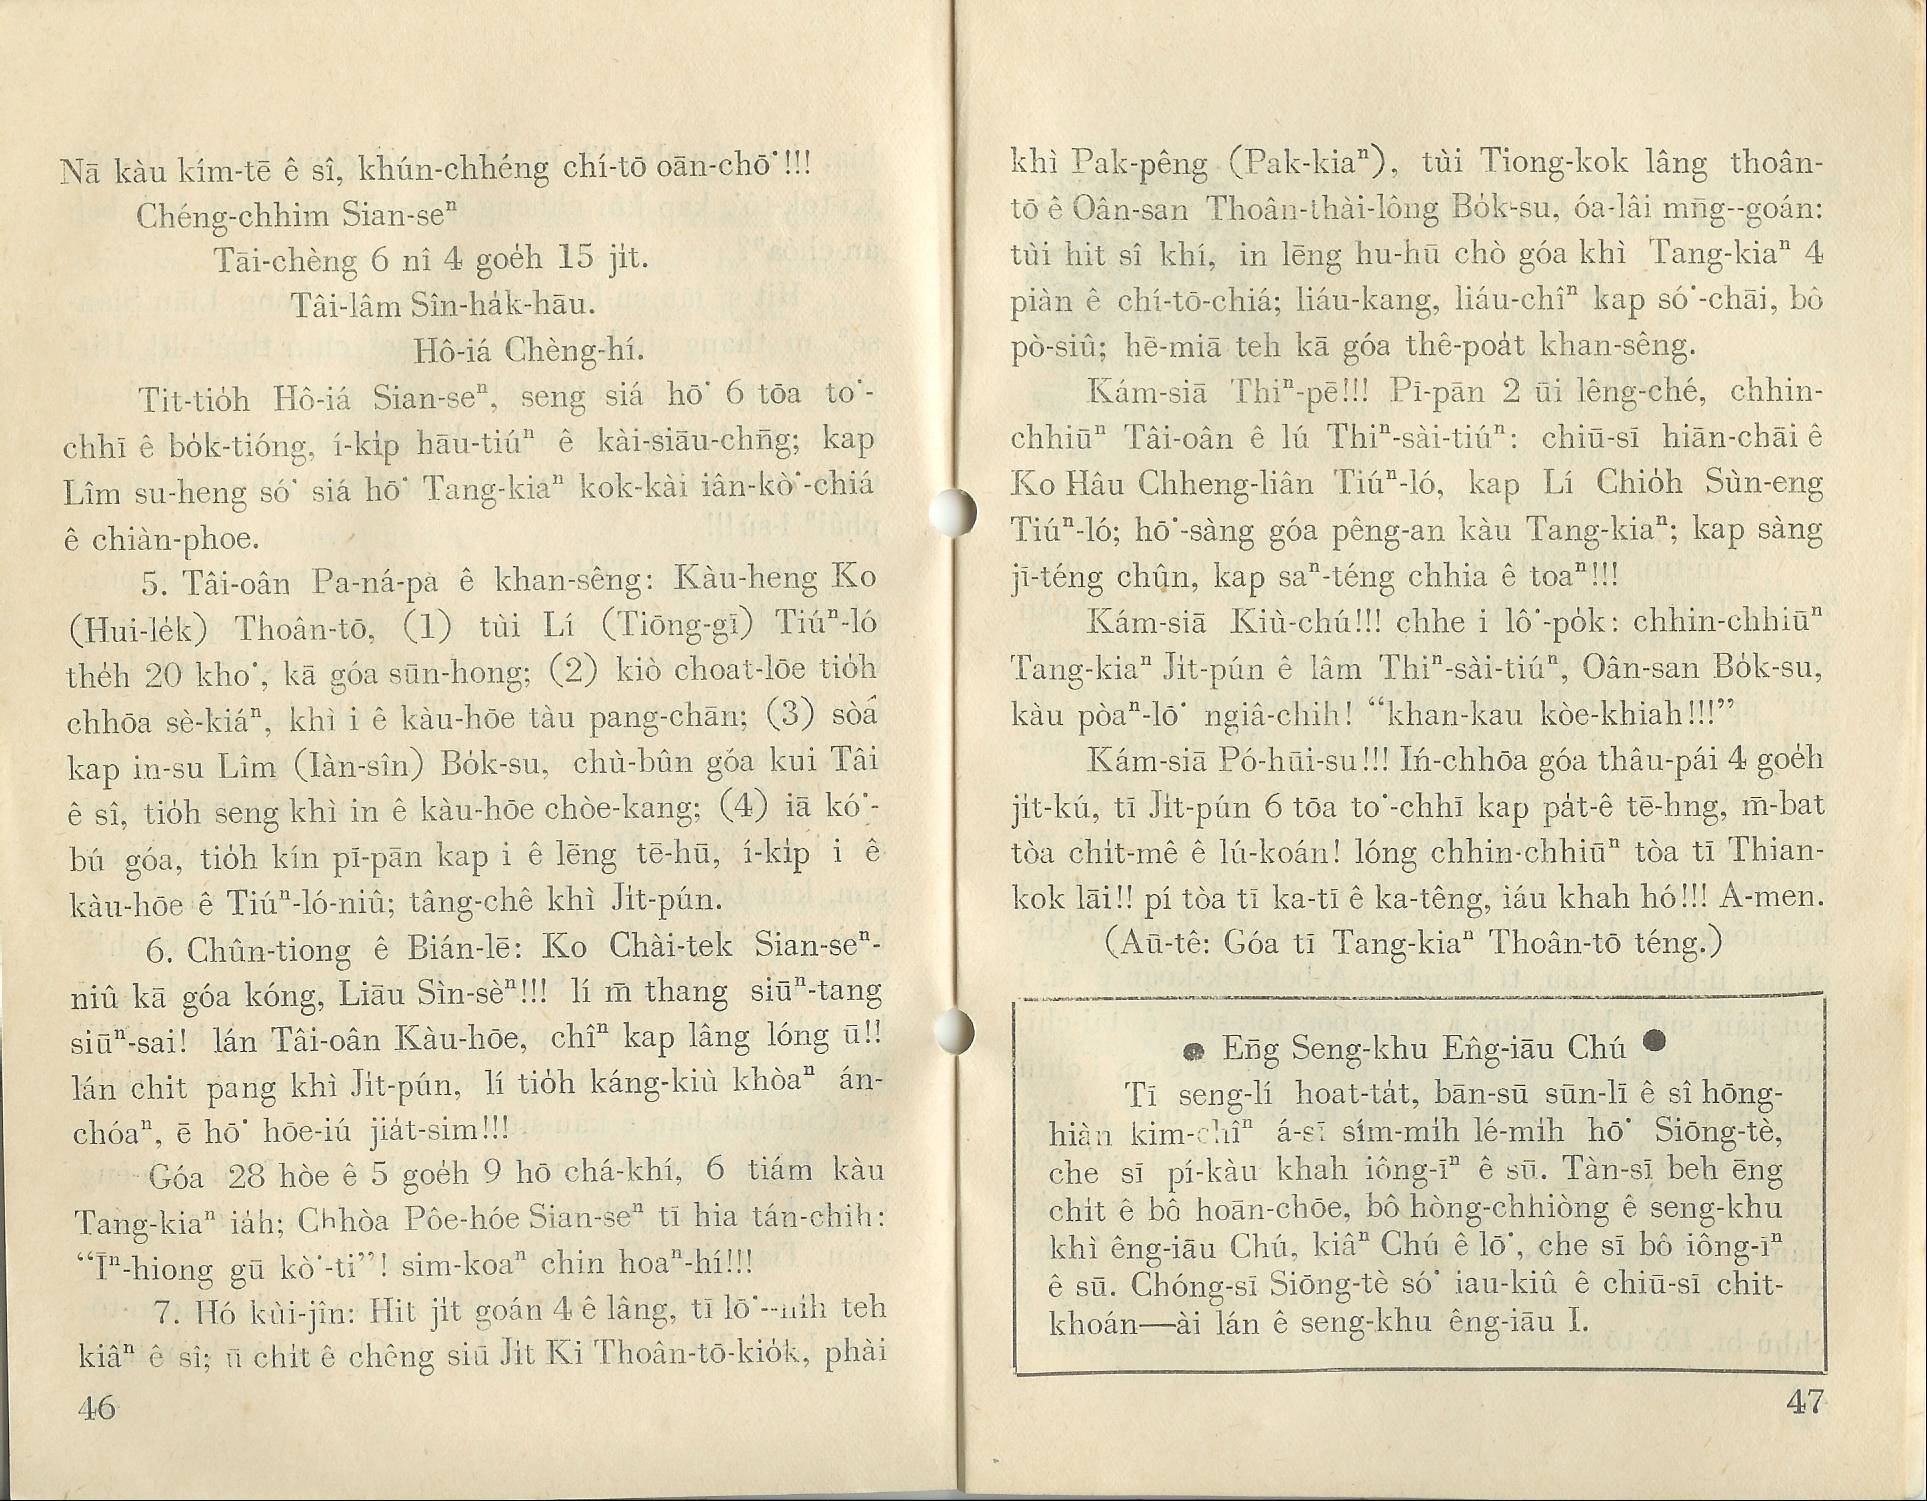 Nā kàu kím-tē ê sî, khún-chhéng chí-tō oān-chō͘!!!
Chéng-chhim Sian-seⁿ
Tāi-chèng 6 nî 4 goe̍h 15 ji̍t.
Tâi-lâm Sîn-ha̍k-hāu.
Hô-iá Chèng-hí.
Tit-tio̍h Hô-iá Sian-seⁿ, seng siá hō͘ 6 tōa to͘-
chhī ê bo̍k-tióng, í-ki̍p hāu-tiúⁿ ê kài-siāu-chn̄g; kap
Lîm su-heng só͘ siá hō͘ Tang-kiaⁿ kok-kài iân-kò͘-chiá
ê chiàn-phoe.
5. Tâi-oân Pa-ná-pà ê khan-sêng: Kàu-heng Ko
(Hui-le̍k) Thoân-tō, (1) tùi Lí (Tiōng-gī) Tiúⁿ-ló
the̍h 20 kho͘, kā góa sūn-hong; (2) kiò choat-lōe tio̍h
chhōa sè-kiáⁿ, khì i ê kàu-hōe tàu pang-chān; (3) sòá
kap in-su Lîm (Iàn-sîn) Bo̍k-su, chù-bûn góa kui Tâi
ê sî, tio̍h seng khì in ê kàu-hōe chòe-kang; (4) iā kó͘-
bú góa, tio̍h kín pī-pān kap i ê lēng tē-hū, í-ki̍p i ê
kàu-hōe ê Tiúⁿ-ló-niû; tâng-chê khì Ji̍t-pún.
6. Chûn-tiong ê Bián-lē: Ko Chài-tek Sian-seⁿ-
niû kā góa kóng, Liāu Sìn-sèⁿ!!! lí m̄ thang siūⁿ-tang
siūⁿ-sai! lán Tâi-oân Kàu-hōe, chîⁿ kap lâng lóng ū!!
lán chit pang khì Ji̍t-pún, lí tio̍h káng-kiù khòaⁿ án-
chóaⁿ, ē hō͘ hōe-iú jia̍t-sim!!!
Góa 28 hòe ê 5 goe̍h 9 hō chá-khí, 6 tiám kàu
Tang-kiaⁿ ia̍h; Chhòa Pôe-hóe Sian-seⁿ tī hia tán-chih:
“Īⁿ-hiong gū kò͘-ti”! sim-koaⁿ chin hoaⁿ-hí!!!
7. Hó kùi-jîn: Hit ji̍t goán 4 ê lâng, tī lō͘--ni̍h teh
kiâⁿ ê sî; ū chi̍t ê chêng siū Ji̍t Ki Thoân-tō-kio̍k, phài
46
khì Pak-pêng (Pak-kiaⁿ), tùi Tiong-kok lâng thoân-
tō ê Oân-san Thoân-thài-lông Bo̍k-su, óa-lâi mn̄g--goán:
tùi hit sî khí, in lēng hu-hū chò góa khì Tang-kiaⁿ 4
piàn ê chí-tō-chiá; liáu-kang, liáu-chîⁿ kap só͘-chāi, bô
pò-siû; hē-miā teh kā góa thê-poa̍t khan-sêng.
Kám-siā Thiⁿ-pē!!! Pī-pān 2 ūi lêng-ché, chhin-
chhiūⁿ Tâi-oân ê lú Thiⁿ-sài-tiúⁿ: chiū-sī hiān-chāi ê
Ko Hâu Chheng-liân Tiúⁿ-ló, kap Lí Chio̍h Sùn-eng
Tiúⁿ-ló; hō͘-sàng góa pêng-an kàu Tang-kiaⁿ; kap sàng
jī-téng chûn, kap saⁿ-téng chhia ê toaⁿ!!!
Kám-siā Kiù-chú!!! chhe i lô͘-po̍k: chhin-chhiūⁿ
Tang-kiaⁿ Ji̍t-pún ê lâm Thiⁿ-sài-tiúⁿ, Oân-san Bo̍k-su,
kàu pòaⁿ-lō͘ ngiâ-chih! “khan-kau kòe-khiah!!!”
Kám-siā Pó-hūi-su!!! Ín-chhōa góa thâu-pái 4 goe̍h
ji̍t-kú, tī Ji̍t-pún 6 tōa to͘-chhī kap pa̍t-ê tē-hng, m̄-bat
tòa chi̍t-mê ê lú-koán! lóng chhin-chhiūⁿ tòa tī Thian-
kok lāi!! pí tòa tī ka-tī ê ka-têng, iáu khah hó!!! A-men.
(Aū-tê: Góa tī Tang-kiaⁿ Thoân-tō téng.)
● Eñg Seng-khu Eng̑-iāu Chú ●
Tī seng-lí hoat-ta̍t, bān-sū sūn-lī ê sî hōng-
hiàn kim-chîⁿ á-sī sím-mi̍h lé-mi̍h hō͘ Siōng-tè,
che sī pí-kàu khah iông-īⁿ ê sū. Tàn-sī beh ēng
chi̍t ê bô hoān-chōe, bô hòng-chhiòng ê seng-khu
khì êng-iāu Chú, kiâⁿ Chú ê lō͘, che sī bô iông-īⁿ
ê sū. Chóng-sī Siōng-tè só͘ iau-kiû ê chiū-sī chit-
khoán—ài lán ê seng-khu êng-iāu I.
47